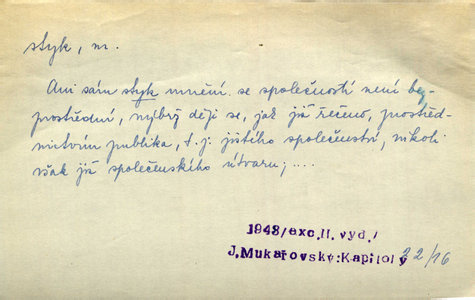 styk, m.
Ani sám styk umění se společností není bez-
prostřední, nýbrž děje se, jak již řečeno, prostřed-
nictvím publika, t. j. jistého společenství, nikoli
však již společenského útvaru; ....
1948/exc.II.vyd./
J.Mukařovský:Kapitoly 22/16